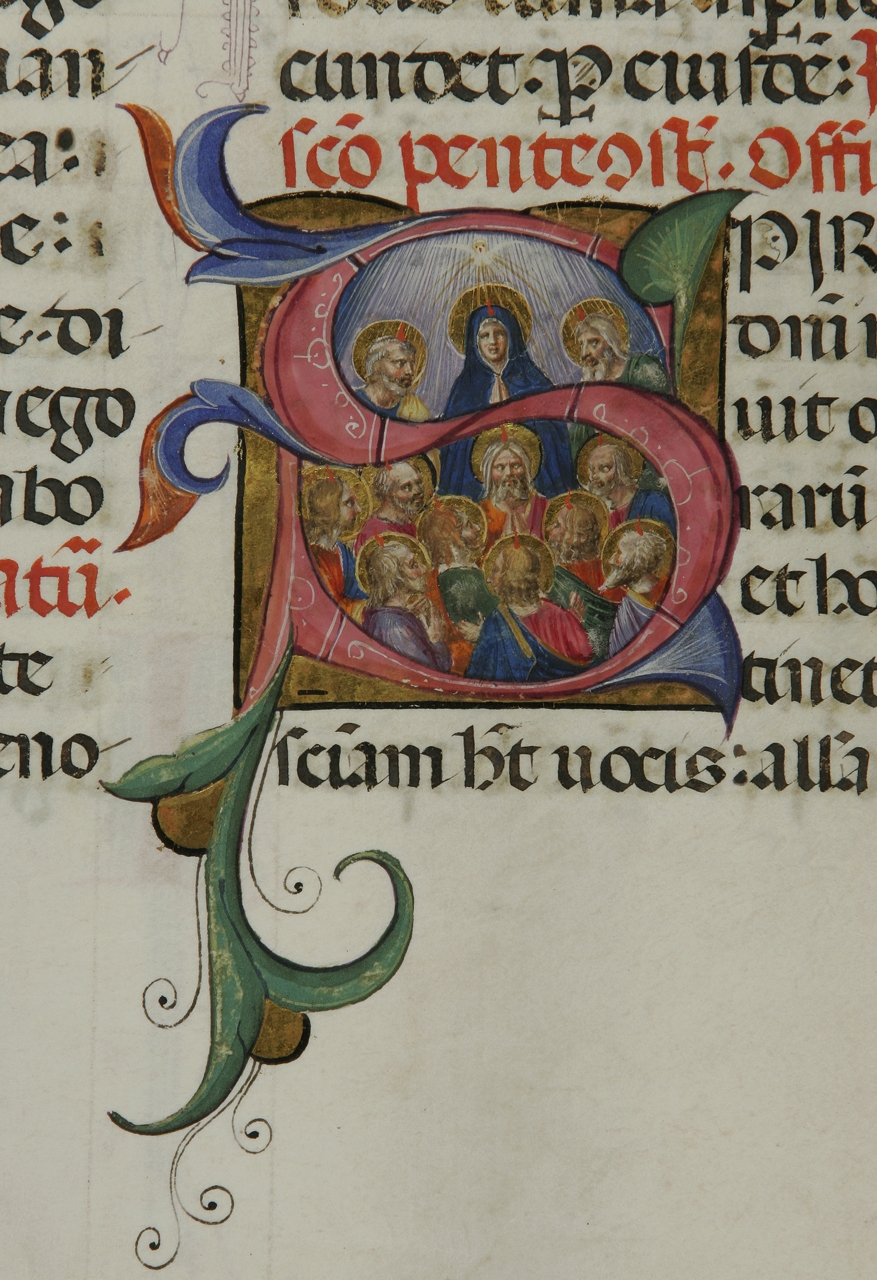 e: 
e. di
ego
bo
atū.
te
no
cundet. P eiusdē:
sc̄o pentecost̄. Offi
SPIR
dn̄i
uit o
rarū
et ho
tinet
sciam h̄t uocis: all'a